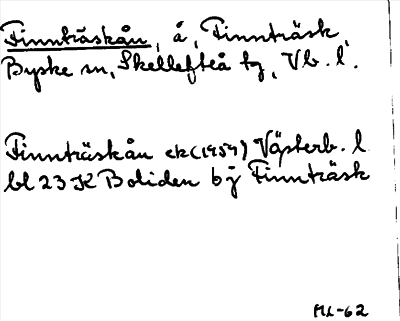 Finnträskån, å, Finnträsk,
Byske sn, Skellefteå tg, Vb. l.
Finnträskån ek (1959) Västerb. l
bl 23 K Boliden bj Finnträsk
ML-62